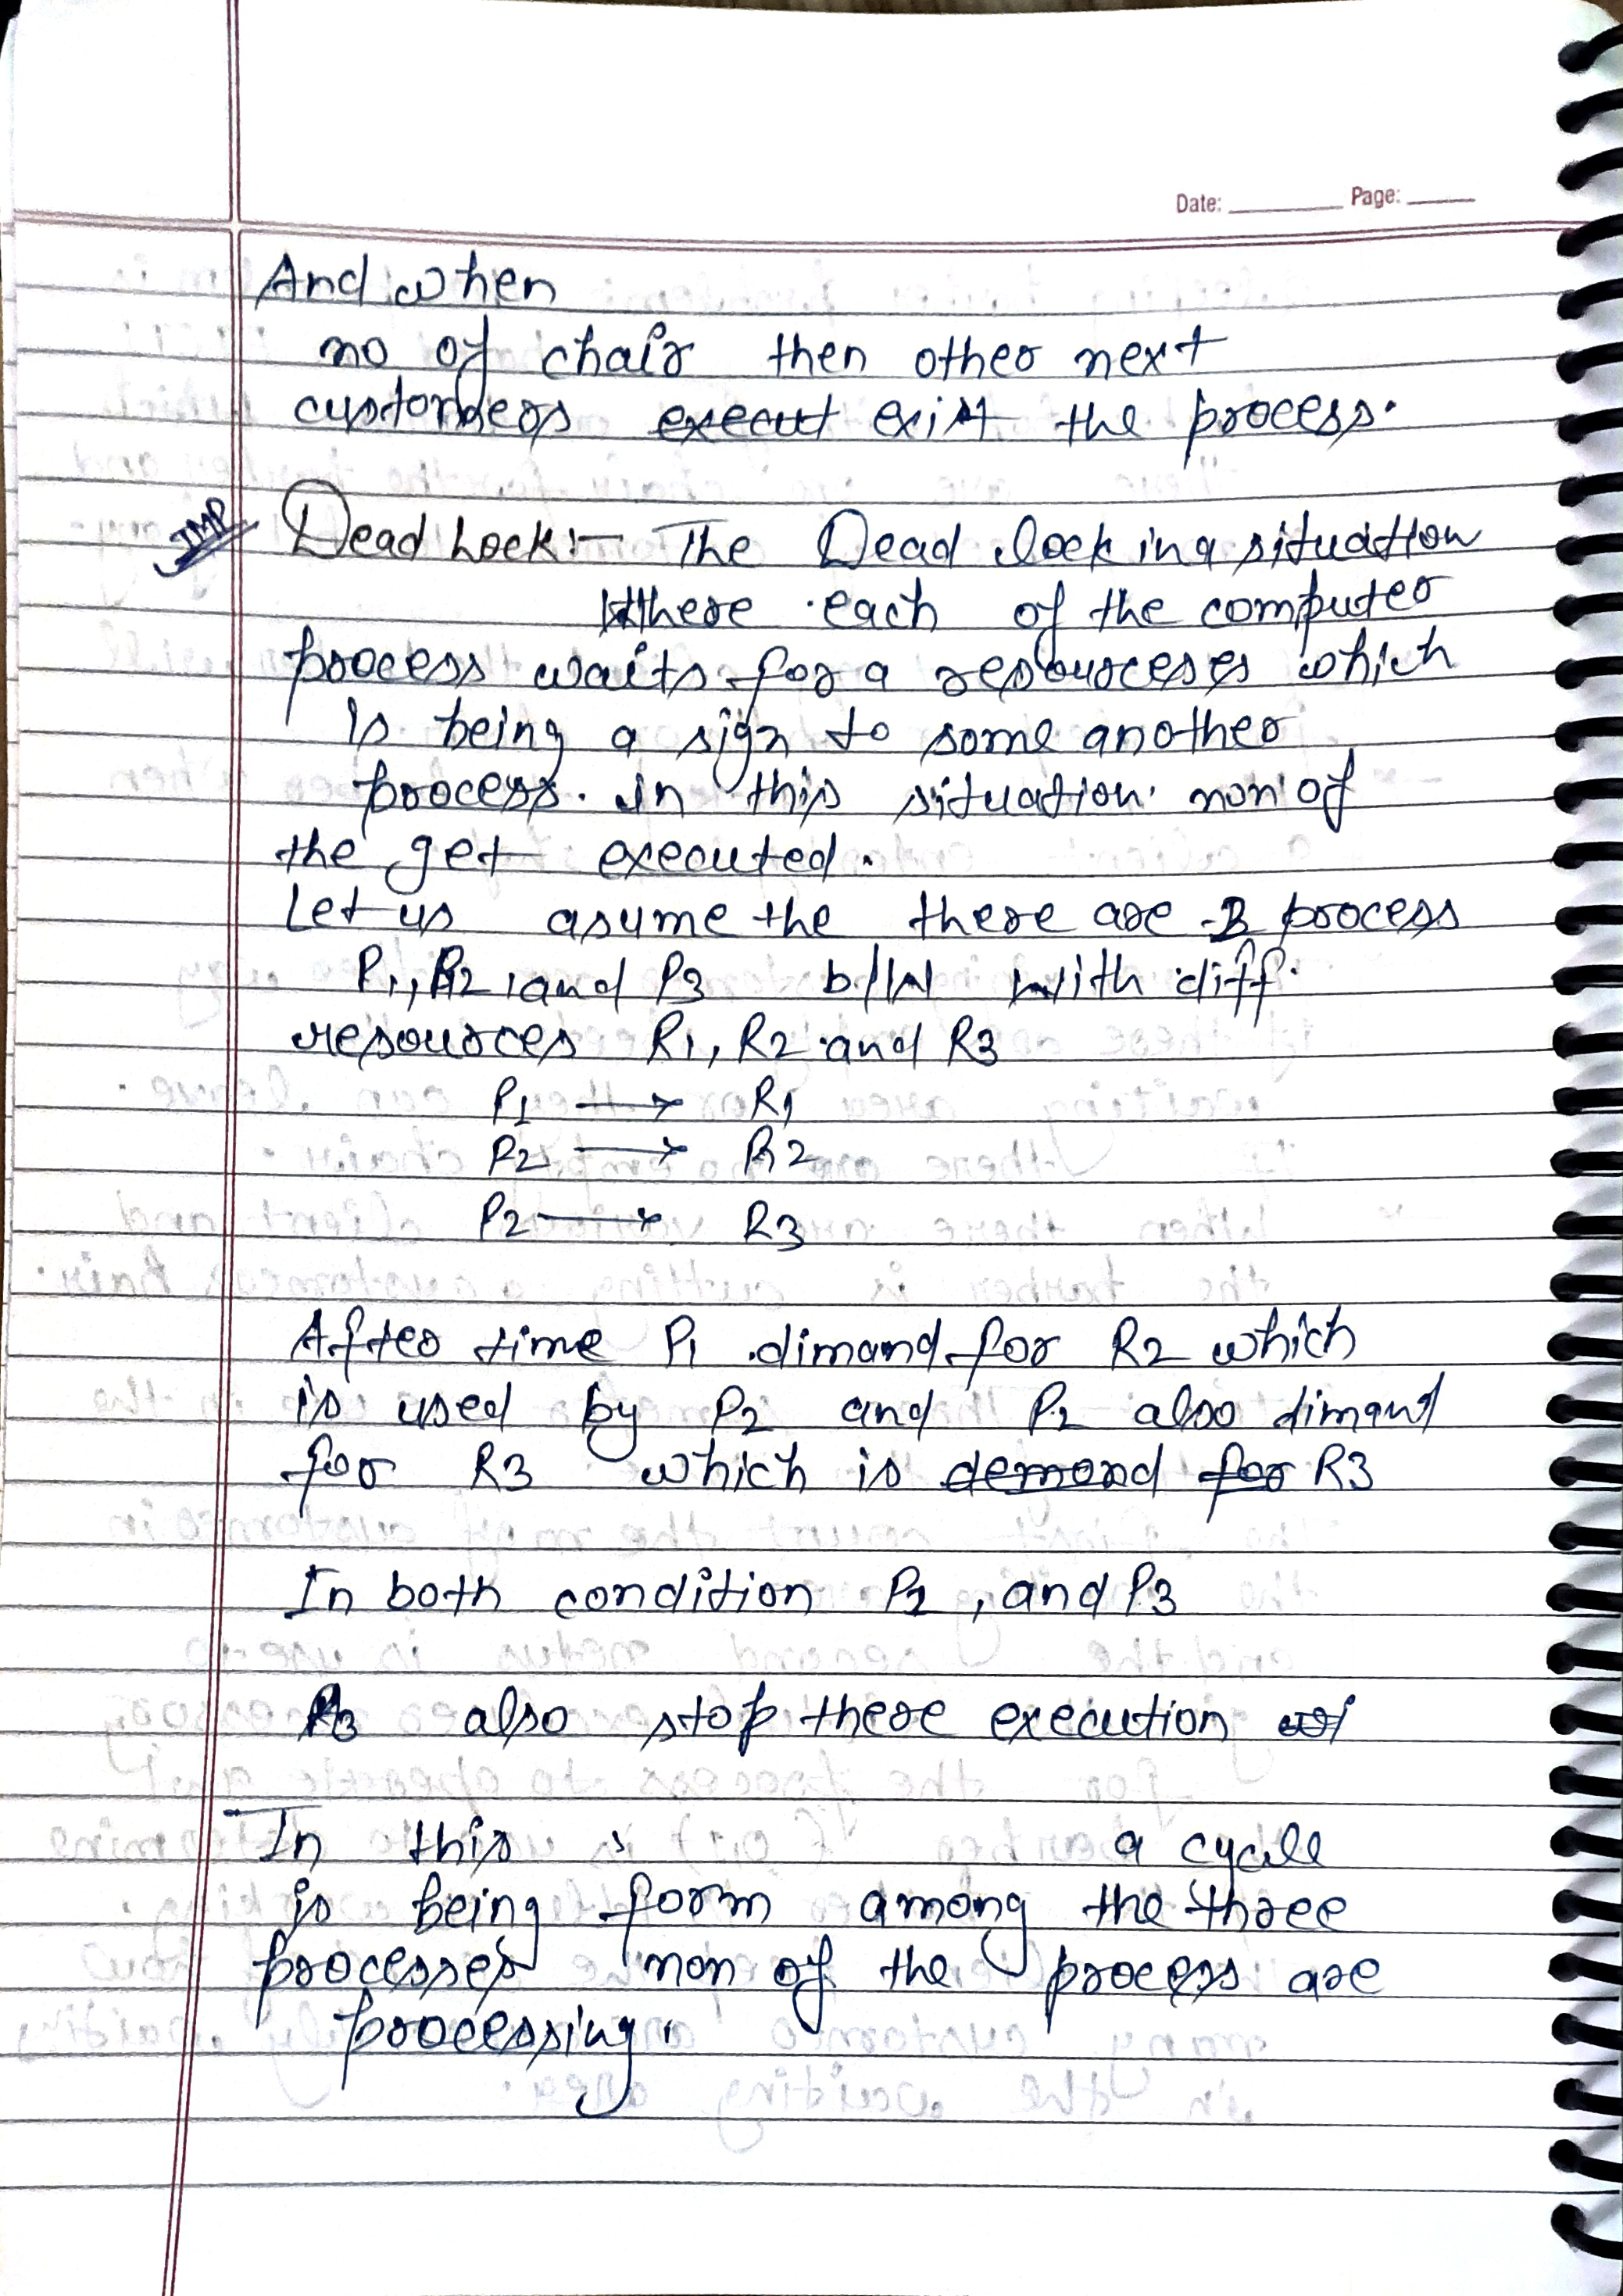 Date: Page:
And when
no of chair then other next
customers execut exist the process.
IMP
Dead Lock:- The Dead lock in a situation
Where each of the computer
process waits for a resourceses which
is being a sign to some another
process. in this situation. non of
the get executed.
Let us asume the there are 3 process
P1, P2, and P3 b/w with diff.
resources R1, R2 and R3
P1 → R1
P2 → R2
P2 → R3
After time P1 dimand for R2 which
is used by P2 and P2 also dimand
for R3 which is demand for R3
In both condition P2, and P3
P3 also stop there execution
In this , a cycle
is being form among the three
processes non of the process are
processing.